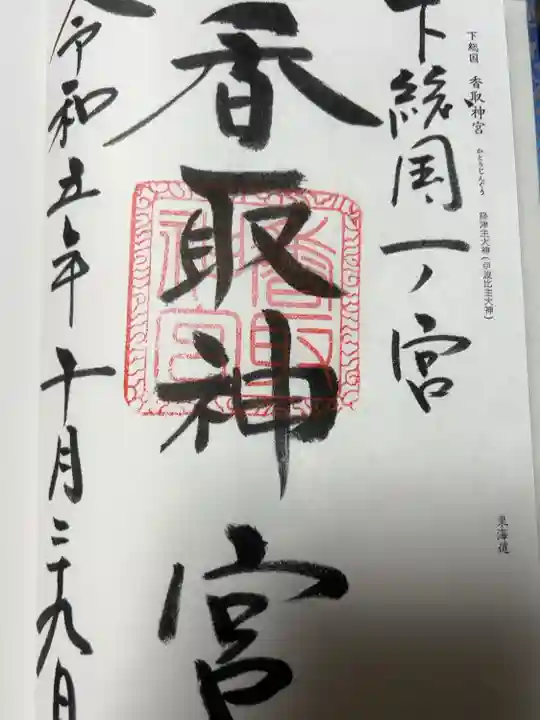 下総国 香取神宮 かとりじんぐう 経津主大神(伊波比主大神)
東海道
下総国一ノ宮
香取神宮
香取神宮
令和五年十月二十九日